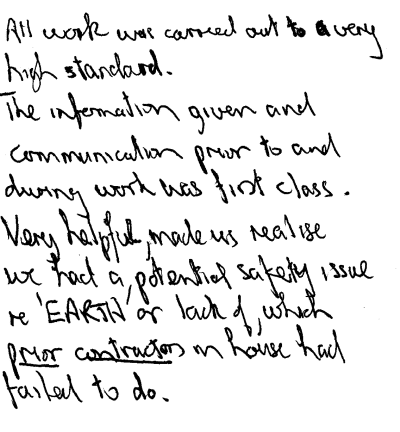 All work was carried out to a very
high standard.
The information given and
communication prior to and
during work was first class.
Very helpful, made us realise
we had a potential safety issue
re 'EARTH' or lack of, which
prior contractors in house had
failed to do.